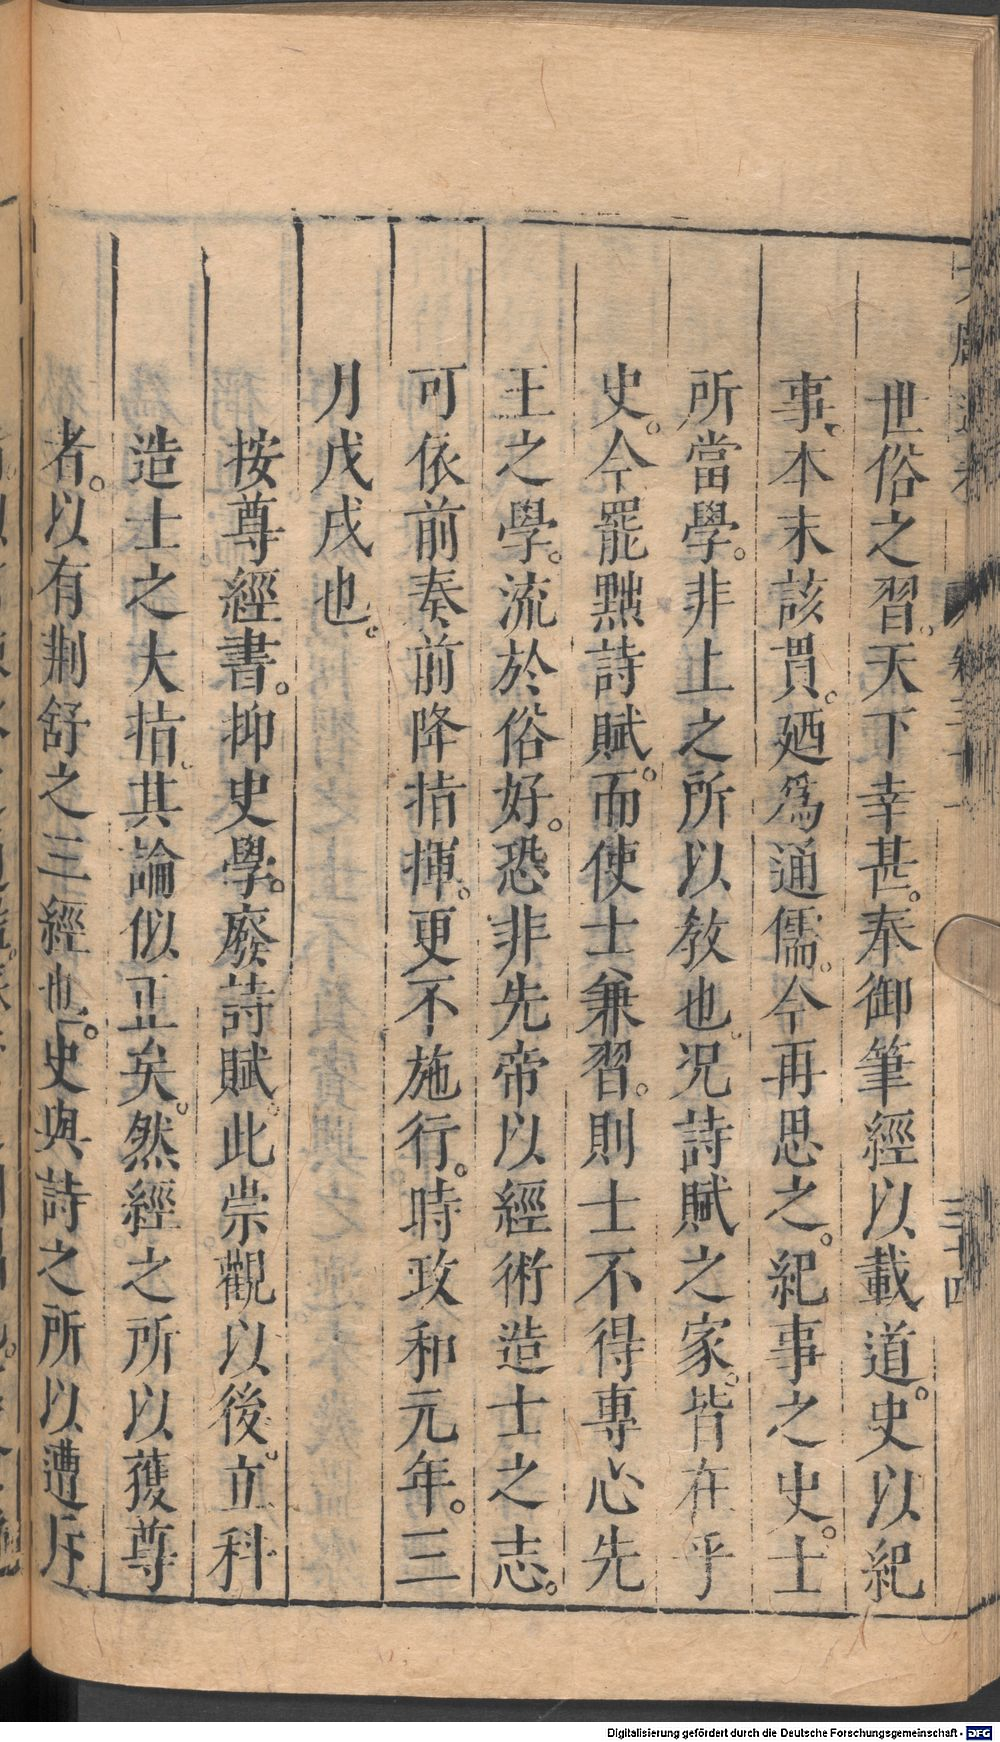 世俗之習。天下幸甚。奉御筆經以載道。史以紀
事。本末該貫。廼爲通儒。今再思之。紀事之史。士
所當學。非止之所以敎也。况詩賦之家。皆在乎
史。今罷黜詩賦。而使士兼習。則士不得專心先
王之學。流於俗好。恐非先帝以經術造士之志。
可依前奏前降指揮。更不施行。時政和元年。三
月戊戌也。
按尊經書。抑史學。廢詩賦。此崇觀以後。立科
造士之大指。其論似正矣。然經之所以獲尊
者。以有荆舒之三經也。史與詩之所以遭斥
三十四
Digitalisierung gefördert durch die Deutsche Forschungsgemeinschaft - DFG